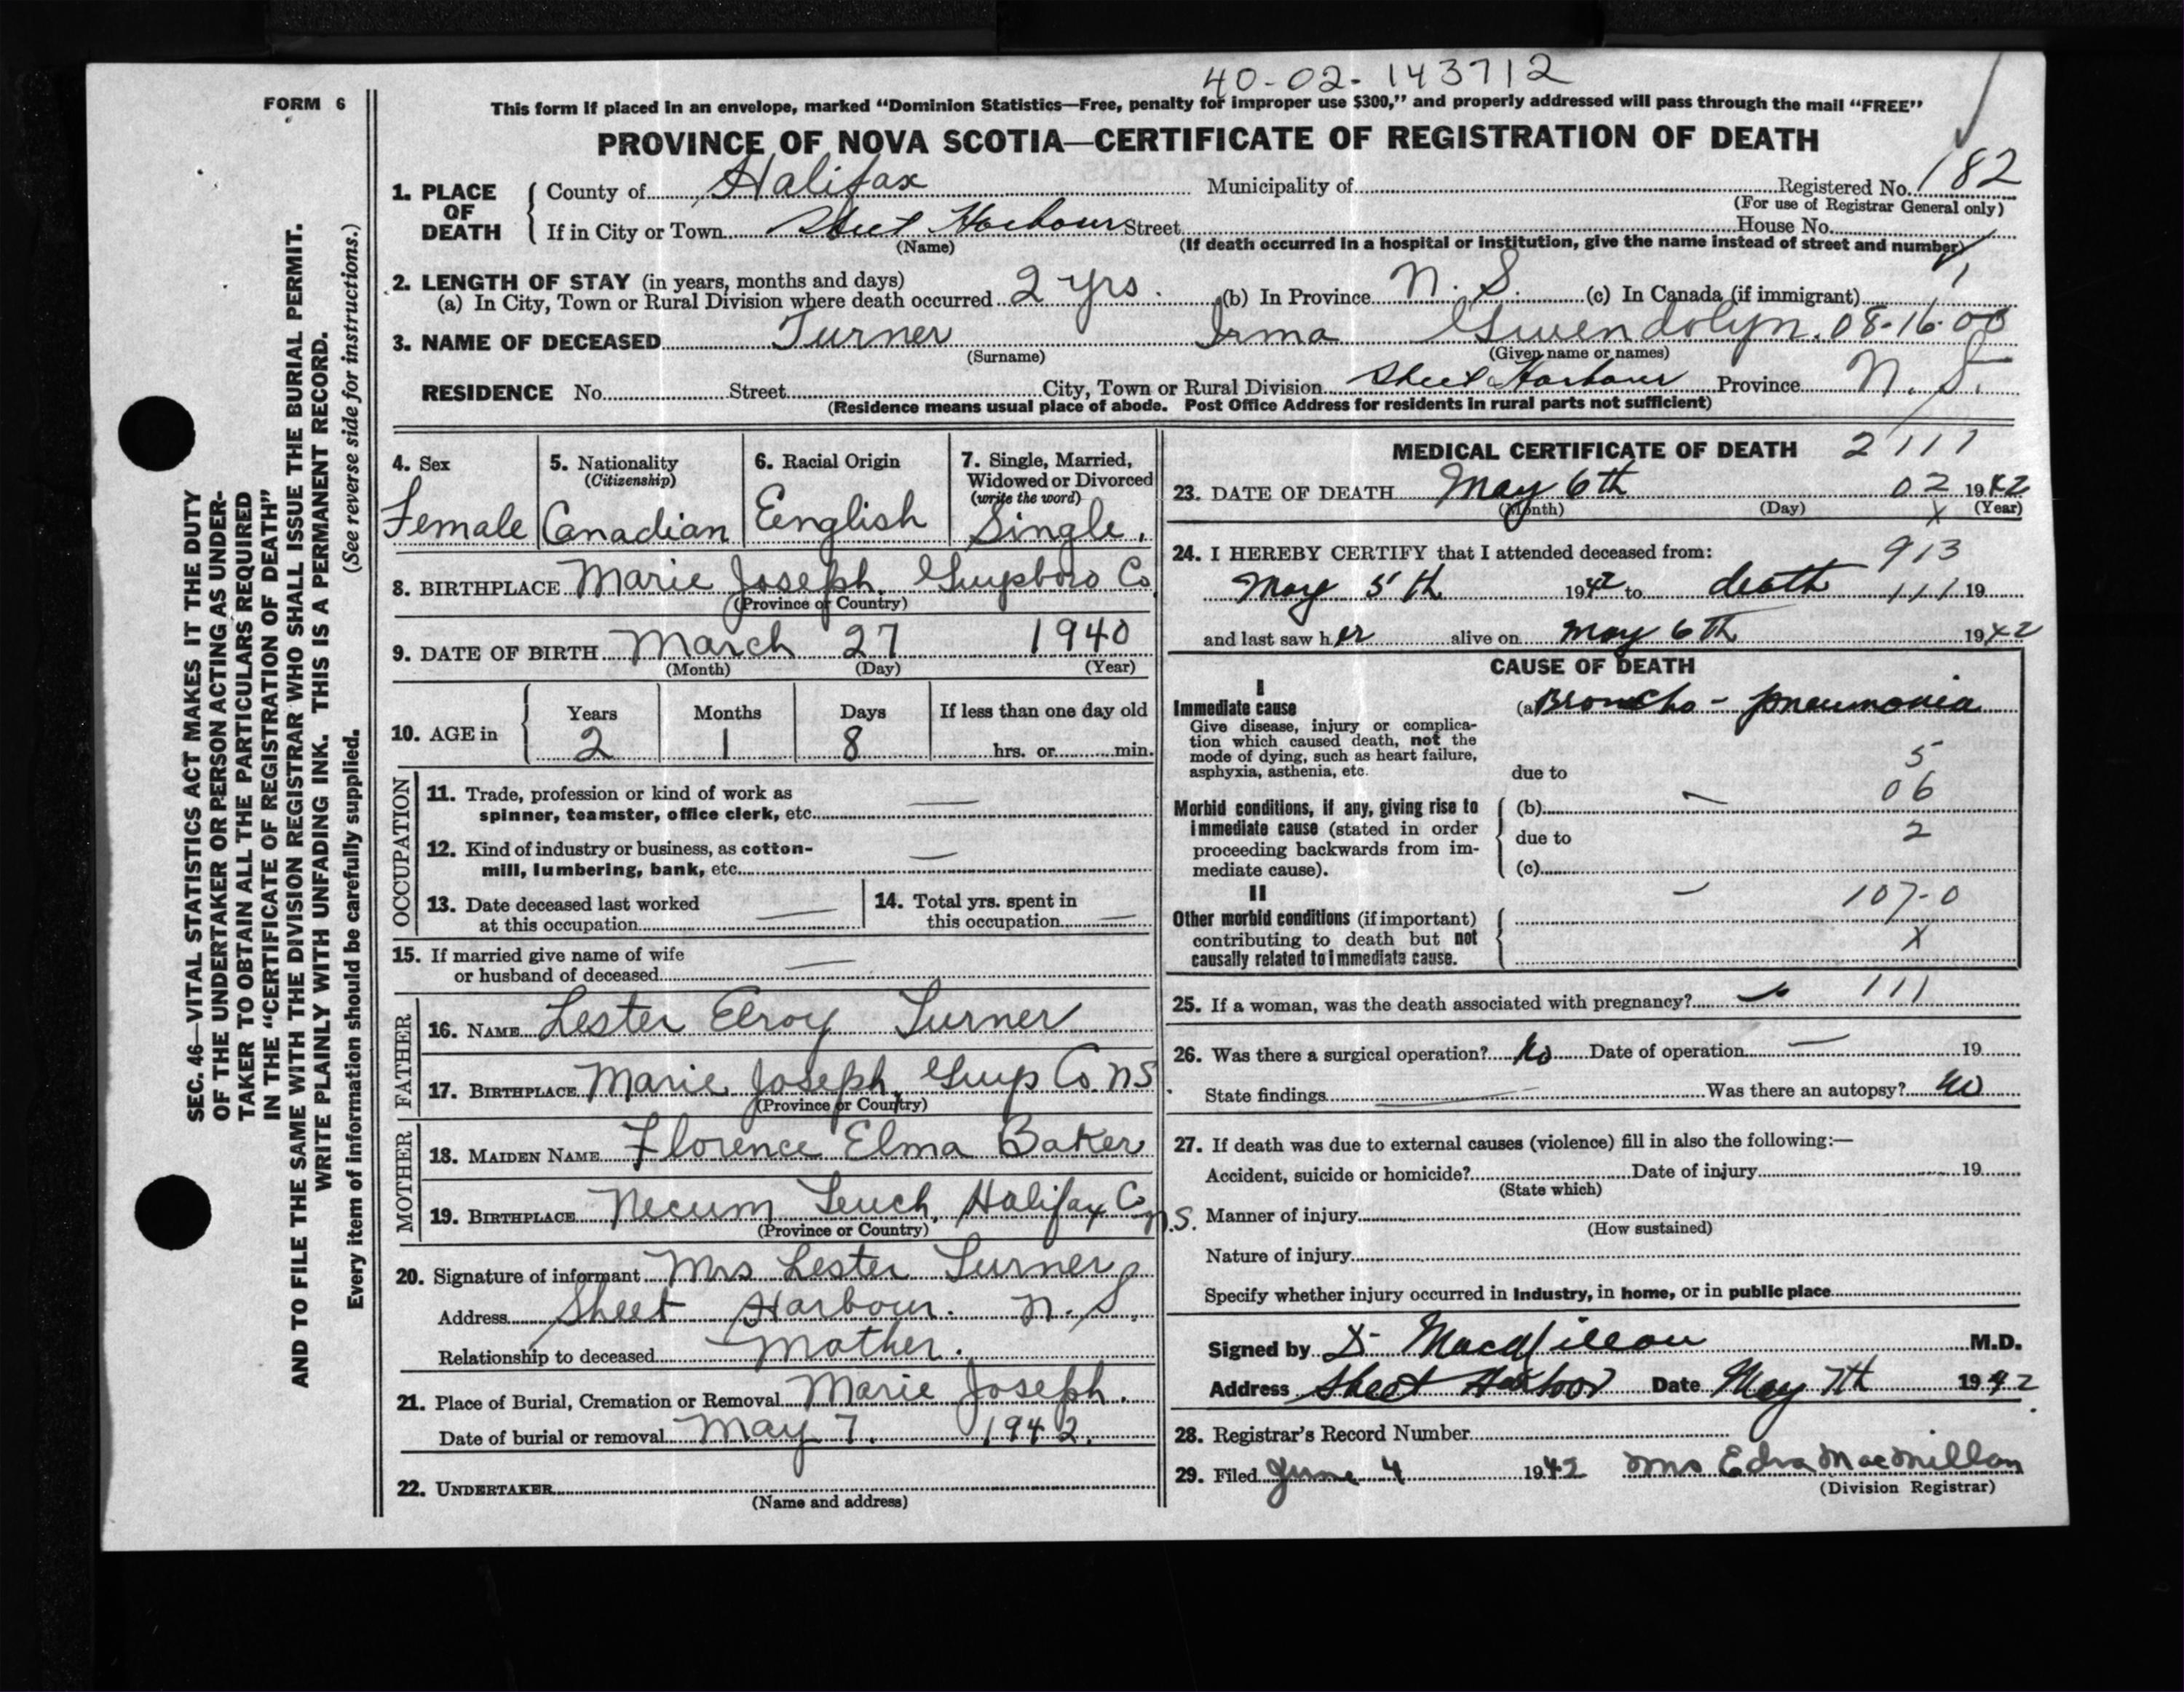 40-02-143712
FORM 6
This form if placed in an envelope, marked “Dominion Statistics—Free, penalty for improper use $300,” and properly addressed will pass through the mail “FREE”
PROVINCE OF NOVA SCOTIA—CERTIFICATE OF REGISTRATION OF DEATH
1. PLACE OF DEATH County of Halifax Municipality of Registered No. 182
(For use of Registrar General only)
If in City or Town Sheet Harbour Street House No.
(Name) (If death occurred in a hospital or institution, give the name instead of street and number)
2. LENGTH OF STAY (in years, months and days)
(a) In City, Town or Rural Division where death occurred 2 yrs. (b) In Province N. S. (c) In Canada (if immigrant) 1
3. NAME OF DECEASED Turner Irma Gwendolyn. 08-16-00
(Surname) (Given name or names)
RESIDENCE No. Street City, Town or Rural Division Sheet Harbour Province N. S.
(Residence means usual place of abode. Post Office Address for residents in rural parts not sufficient)
4. Sex
Female
5. Nationality
(Citizenship)
Canadian
6. Racial Origin
Eenglish
7. Single, Married,
Widowed or Divorced
(write the word)
Single.
8. BIRTHPLACE Marie Joseph, Guysboro Co
(Province or Country)
9. DATE OF BIRTH March 27 1940
(Month) (Day) (Year)
10. AGE in
Years Months Days If less than one day old
2 1 8 hrs. or min.
OCCUPATION
11. Trade, profession or kind of work as
spinner, teamster, office clerk, etc. —
12. Kind of industry or business, as cotton-
mill, lumbering, bank, etc. —
13. Date deceased last worked
at this occupation —
14. Total yrs. spent in
this occupation —
15. If married give name of wife
or husband of deceased —
FATHER
16. NAME Lester Elroy Turner
17. BIRTHPLACE Marie Joseph, Guys Co. N S
(Province or Country)
MOTHER
18. MAIDEN NAME Florence Elma Baker
19. BIRTHPLACE Necum Teuch, Halifax Co N.S.
(Province or Country)
20. Signature of informant Mrs Lester Turner
Address Sheet Harbour. N. S.
Relationship to deceased Mother.
21. Place of Burial, Cremation or Removal Marie Joseph.
Date of burial or removal May 7. 1942.
22. UNDERTAKER
(Name and address)
MEDICAL CERTIFICATE OF DEATH 2111
23. DATE OF DEATH May 6th 02 1942
(Month) (Day) X (Year)
24. I HEREBY CERTIFY that I attended deceased from: 913
May 5th 1942 to death 111 19
and last saw her alive on May 6th 1942
CAUSE OF DEATH
I
Immediate cause
Give disease, injury or complica-
tion which caused death, not the
mode of dying, such as heart failure,
asphyxia, asthenia, etc.
(a) Broncho-pneumonia
5
due to
06
Morbid conditions, if any, giving rise to
immediate cause (stated in order
proceeding backwards from im-
mediate cause).
(b) —
due to 2
(c)
II
Other morbid conditions (if important)
contributing to death but not
causally related to immediate cause.
— 107-0
X
25. If a woman, was the death associated with pregnancy? 111
26. Was there a surgical operation? No Date of operation — 19
State findings — Was there an autopsy? No
27. If death was due to external causes (violence) fill in also the following:—
Accident, suicide or homicide? Date of injury 19
(State which)
Manner of injury
(How sustained)
Nature of injury
Specify whether injury occurred in Industry, in home, or in public place
Signed by D MacMillan M.D.
Address Sheet Harbor Date May 7th 1942
28. Registrar's Record Number
29. Filed June 4 1942 Mrs Edna MacMillan
(Division Registrar)
SEC. 46—VITAL STATISTICS ACT MAKES IT THE DUTY
OF THE UNDERTAKER OR PERSON ACTING AS UNDER-
TAKER TO OBTAIN ALL THE PARTICULARS REQUIRED
IN THE “CERTIFICATE OF REGISTRATION OF DEATH”
AND TO FILE THE SAME WITH THE DIVISION REGISTRAR WHO SHALL ISSUE THE BURIAL PERMIT.
WRITE PLAINLY WITH UNFADING INK. THIS IS A PERMANENT RECORD.
Every item of information should be carefully supplied. (See reverse side for instructions.)